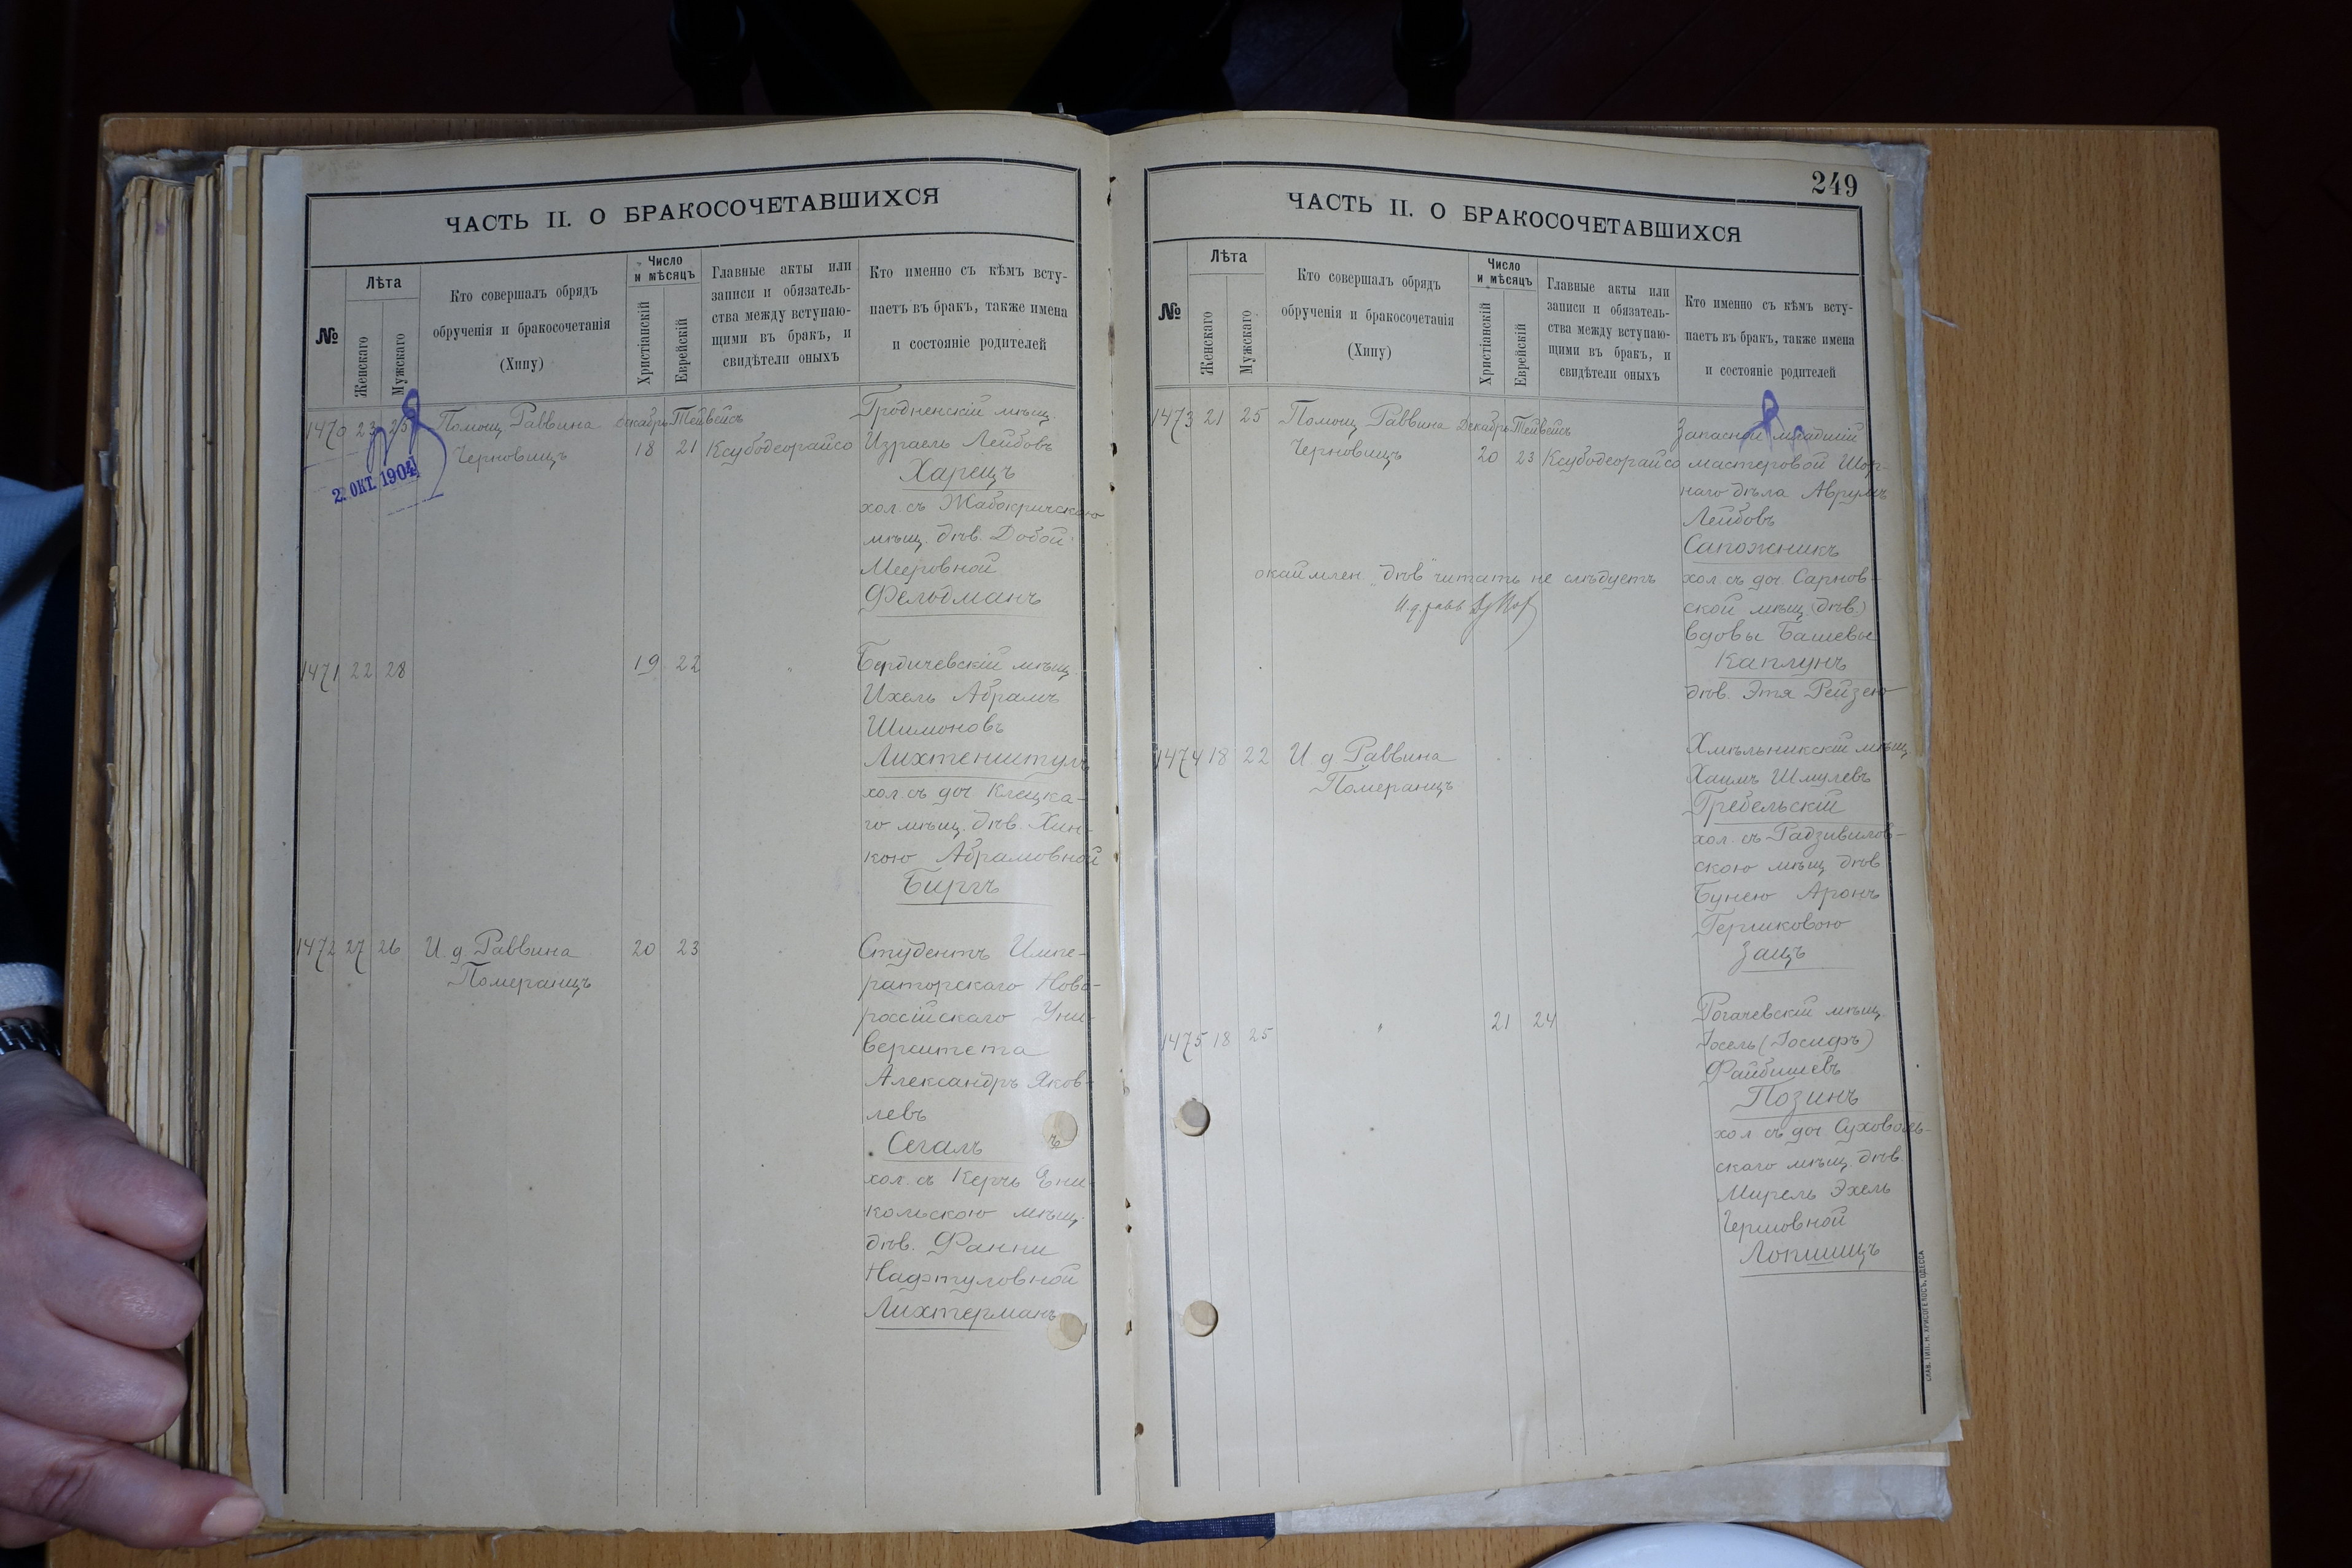 ЧАСТЬ II. О БРАКОСОЧЕТАВШИХСЯ
№
Лѣта
Женскаго
Мужскаго
Кто совершалъ обрядъ
обрученія и бракосочетанія
(Хипу)
Число
и мѣсяцъ
Христіанскій
Еврейскій
Главные акты или
записи и обязатель-
ства между вступаю-
щими въ бракъ, и
свидѣтели оныхъ
Кто именно съ кѣмъ всту-
паетъ въ бракъ, также имена
и состояніе родителей
1470 23 25 Помощ. Раввина Декабрь Тейвейсъ Гродненскій мѣщ.
Черновицъ 18 21 Ксубодеорайсо Израель Лейбовъ
2. ОКТ. 1904
Харецъ
хол. съ Жабокричскою
мѣщ. дѣв. Добой
Мееровной
Фельдманъ
1471 22 28 " 19 22 " Бердичевскій мѣщ.
Ихель Абрамъ
Шимоновъ
Лихтенштулъ
хол. съ доч. Клецка-
го мѣщ. дѣв. Хин-
кою Абрамовной
Биргъ
1472 27 26 И. д. Раввина 20 23 Студентъ Импе-
Померанцъ раторскаго Ново-
россійскаго Уни-
верситета
Александръ Яков-
левъ
Сегаль
хол. съ Керчь Ени-
кольскою мѣщ.
дѣв. Фанни
Нафтуловной
Лихтерманъ
249
ЧАСТЬ II. О БРАКОСОЧЕТАВШИХСЯ
№
Лѣта
Женскаго
Мужскаго
Кто совершалъ обрядъ
обрученія и бракосочетанія
(Хипу)
Число
и мѣсяцъ
Христіанскій
Еврейскій
Главные акты или
записи и обязатель-
ства между вступаю-
щими въ бракъ, и
свидѣтели оныхъ
Кто именно съ кѣмъ всту-
паетъ въ бракъ, также имена
и состояніе родителей
1473 21 25 Помощ. Раввина Декабрь Тейвейсъ Запасной младшій
Черновицъ 20 23 Ксубодеорайсо мастеровой Шор-
наго дѣла Аврумъ
Лейбовъ
Сапожникъ
окаймлен. "дѣв" читать не слѣдуетъ хол. съ доч. Сарнов-
И.д. равв. ской мѣщ. (дѣв.)
вдовы Башевы
Каплунъ
дѣв. Этя Рейзею
1474 18 22 И. д. Раввина Хмѣльникскій мѣщ.
Померанцъ Хаимъ Шмулевъ
Гребельскій
хол. съ Радзивилов-
скою мѣщ. дѣв
Бунею Аронъ
Гершковою
Зацъ
1475 18 25 " 21 24 Рогачевскій мѣщ.
Іосель (Іосифъ)
Файбишевъ
Позинъ
хол. съ доч. Суховоль-
скаго мѣщ. дѣв.
Мирель Эхель
Гершовной
Локшицъ
СЛАВ. ТИП. Н. ХРИСОГЕЛОСЪ, ОДЕССА